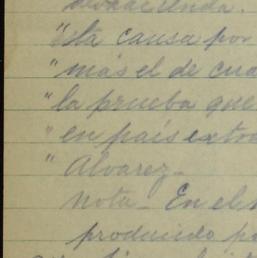 "esta causa por
"más el de cua
"la prueba que
"en país extra
"Alvarez_
nota_ En el
producido po